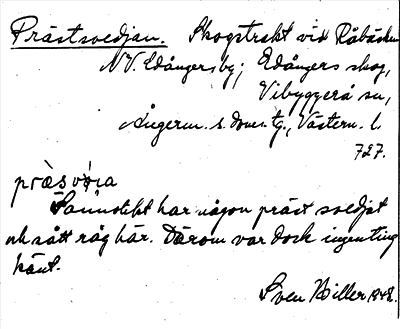 Prästsvedjan. Skogstrakt vid Råbäcken
NV. Edånger, by; Edångers skog,
Vibyggerå sn,
Ångerm. s. doms. tg., Västern. l.
727.
prѐsvø̀ia
Sannolikt har någon präst svedjat
och sått råg här. Därom var dock ingenting
känt.
Sven Hiller 1948.